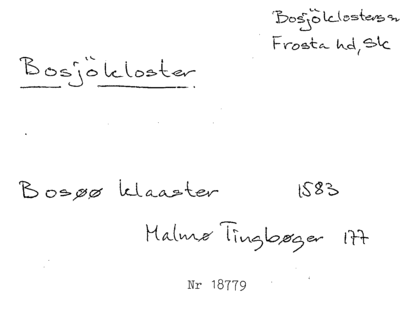 Bosjöklosters sn
Frosta hd, Sk
Bosjökloster
Bosøø klaaster 1583
Malmø Tingbøger 177
Nr 18779